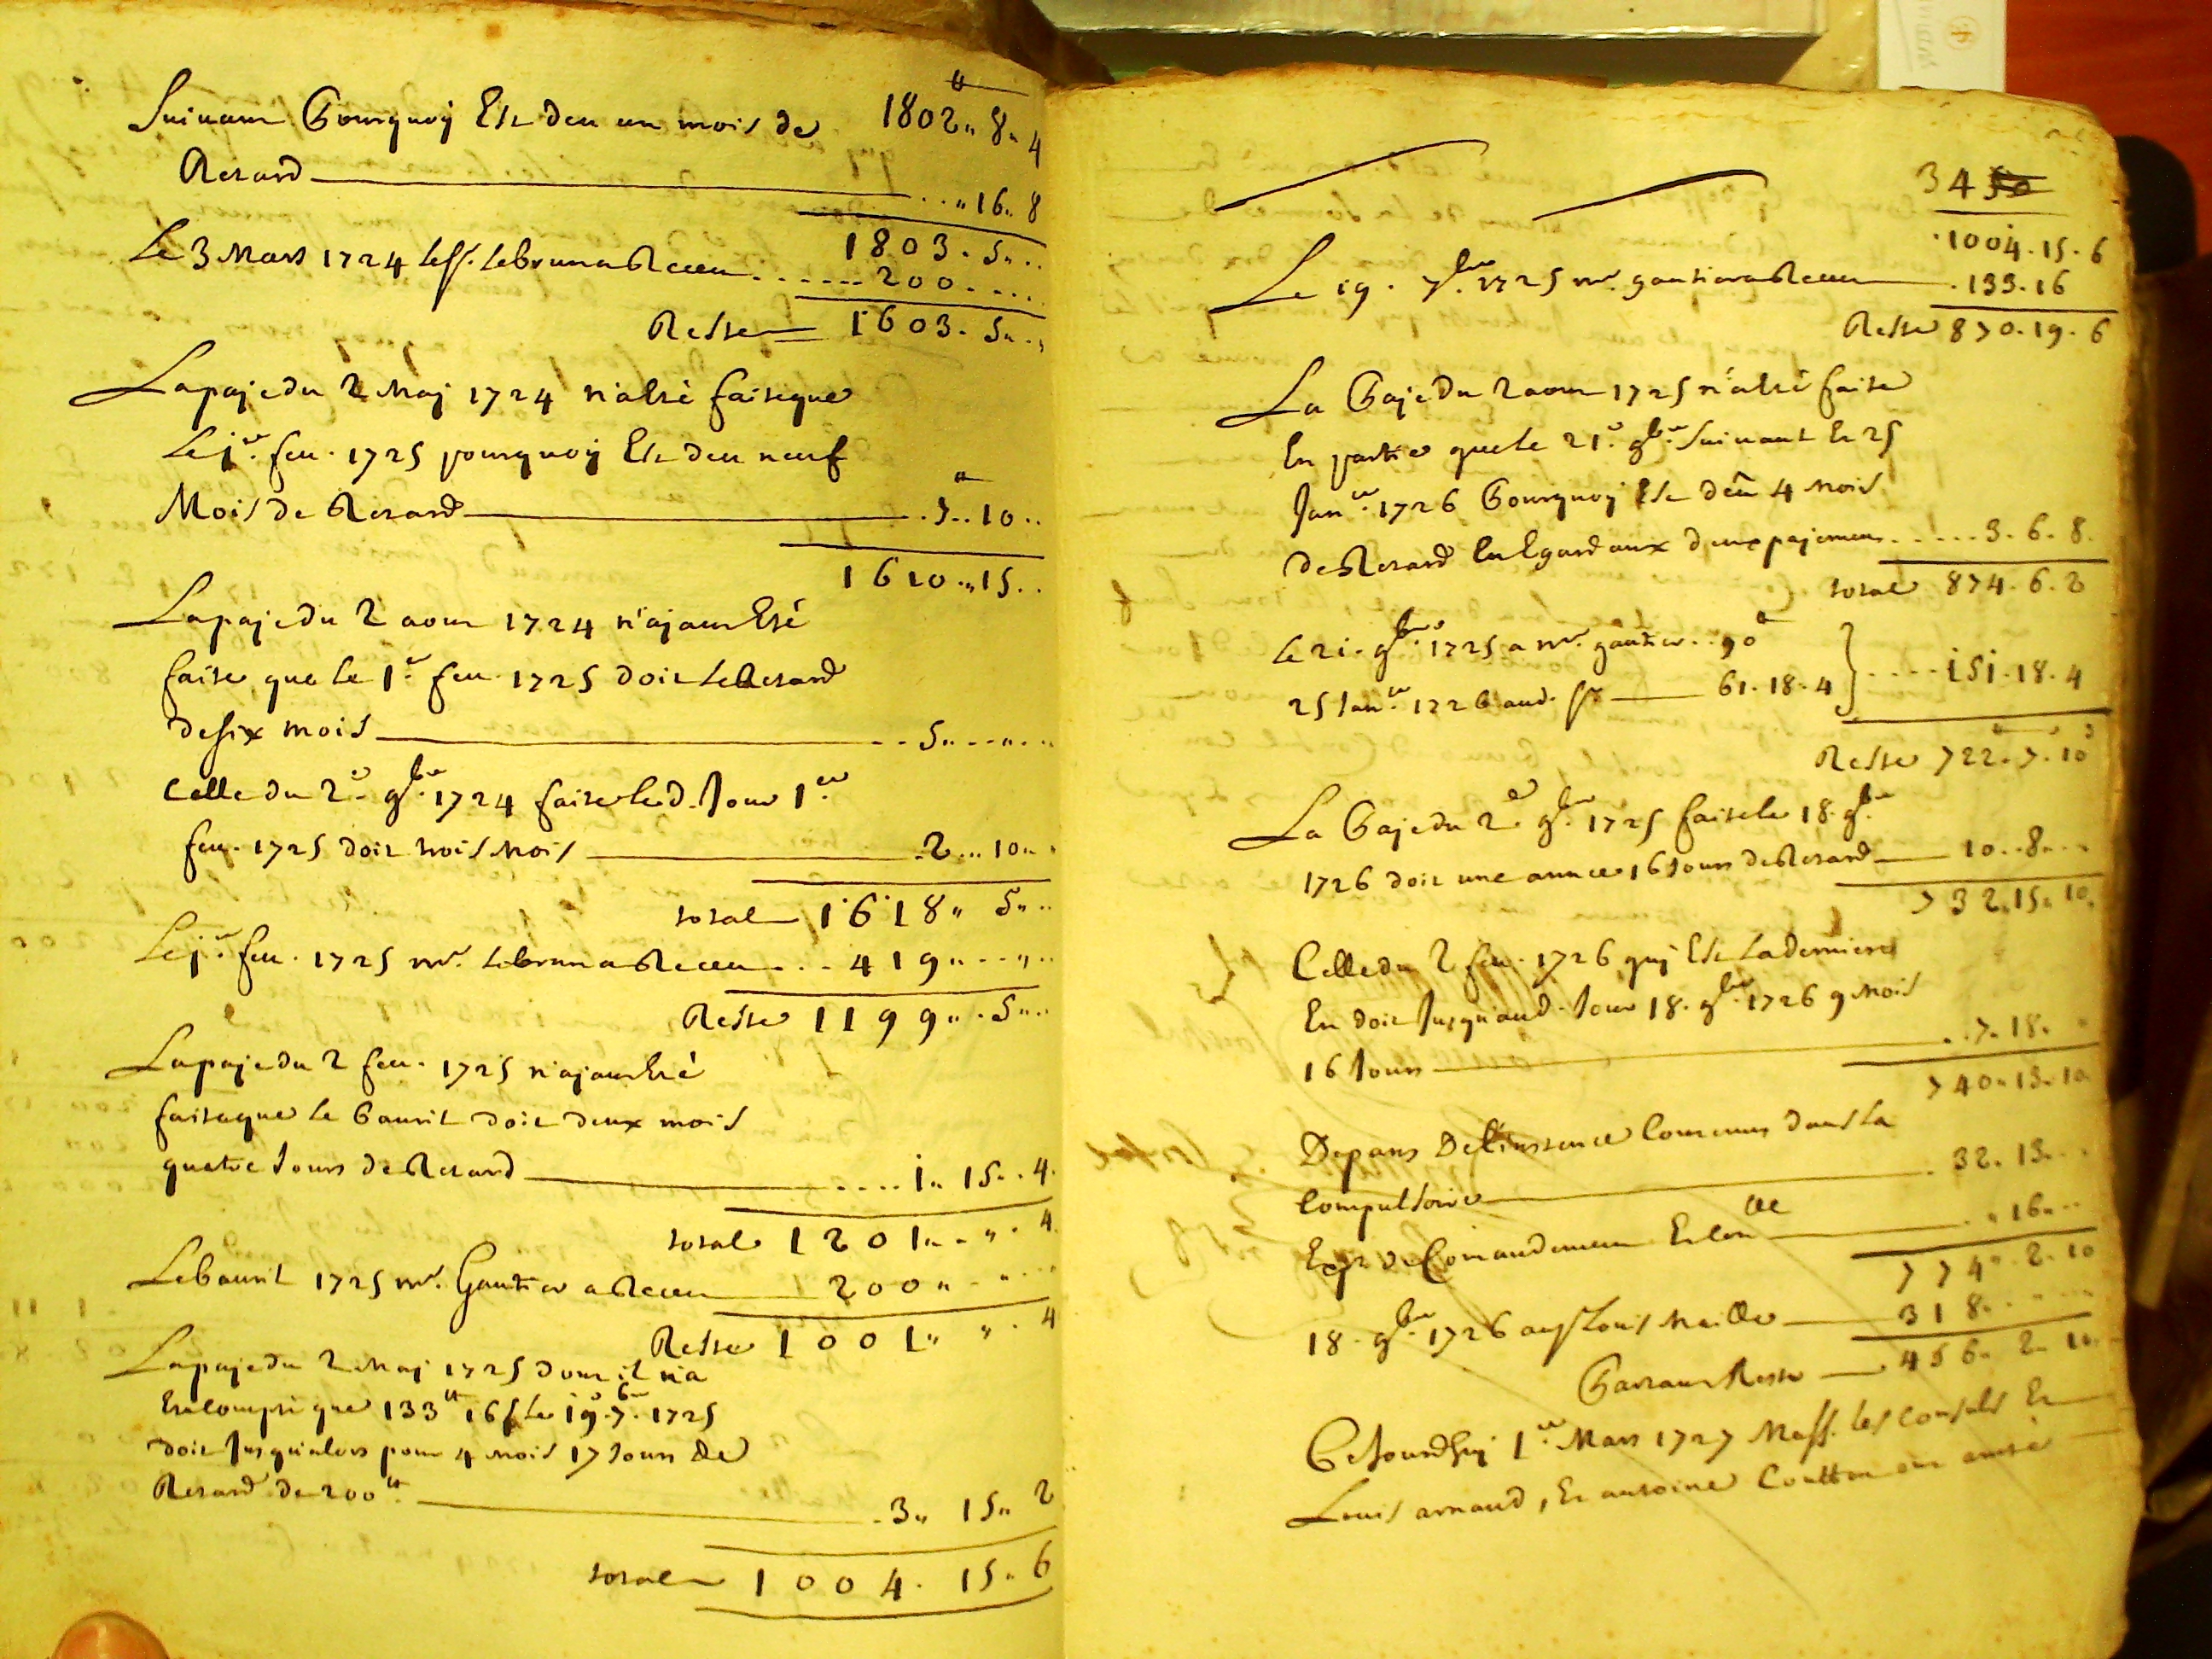 Suivant Pourquoy Est deu un mois de 1802 " 8 " 4
Retard " 16 " 8
1803 . 5 "
Le 3 Mars 1724 le Sr. Lebrun a Receu 200
Reste 1603 . 5 "
La paje du 2 Maj 1724 n'a été faite que
Le 1er. feu. 1725 pourquoy Est deu neuf
Mois de Retard 7 . 10
1610 " 15
La paje du 2 aout 1724 n'ajant Eté
faite que le 1er feu. 1725 doit le Retard
de six mois 5 "
Celle du 2e. 9bre. 1724 faite led. Jour 1er
feu. 1725 doit trois Mois 2 . 10 "
total 1618 " 5 "
Le 1er. feu. 1725 mr. Lebrun a Receu 419 "
Reste 1199 " 5 "
La paje du 2 feu. 1725 n'ajant Eté
faite que le 6 avril doit deux mois
quatre Jours de Retard 1 " 15 . 4
total 1201 " " 4
Le 6 avril 1725 mr. Gautier a Receu 200 "
Reste 1001 " " 4
La paje du 2 Maj 1725 dont il n'a
Eté compté que 133 tt 16 s Le 19e. 7bre. 1725
doit Jusqu'alors pour 4 mois 17 Jours de
Retard de 200 tt 3 " 15 " 2
total 1004 . 15 . 6
34
1004 . 15 . 6
Le 19 . 7bre. 1725 mr. gautier a Receu 133 . 16
Reste 870 . 19 . 6
La Paje du 2 aout 1725 n'a été faite
En partie que le 21e. 9bre. Suivant Et 25
Janer. 1726 Pourquoy Est deü 4 mois
de Retard En Egard aux deux pajemens 3 . 6 . 8
total 874 . 6 . 2
Le 21. 9bre. 1725 a mr. gautier 90 tt
25 Janer. 1726 aud. Sr 61 . 18 . 4 } 151 . 18 . 4
Reste 722 . 7 . 10
La Paje du 2e 9bre. 1725 faite le 18. 9bre.
1726 doit une année 16 Jours de Retard 10 . 8
732 . 15 . 10
Celle du 2 feu. 1726 quj Est La derniere
En doit Jusqu'aud. Jour 18. 9bre. 1726 9 Mois
16 Jours 7 . 18
740 . 13 . 10
Depans De l'instance Comprins dans la
Compulsoire 32 . 13
Expt de Comandement Et Con lle " 16 "
774 " 2 . 10
18 . 9bre. 1726 au Sr Louis Maille 318
Partant Reste 456 " 2 " 10
Ce Jourdhuj 1er. Mars 1727 Mess. les Consuls Et
Louis arnaud, Et antoine